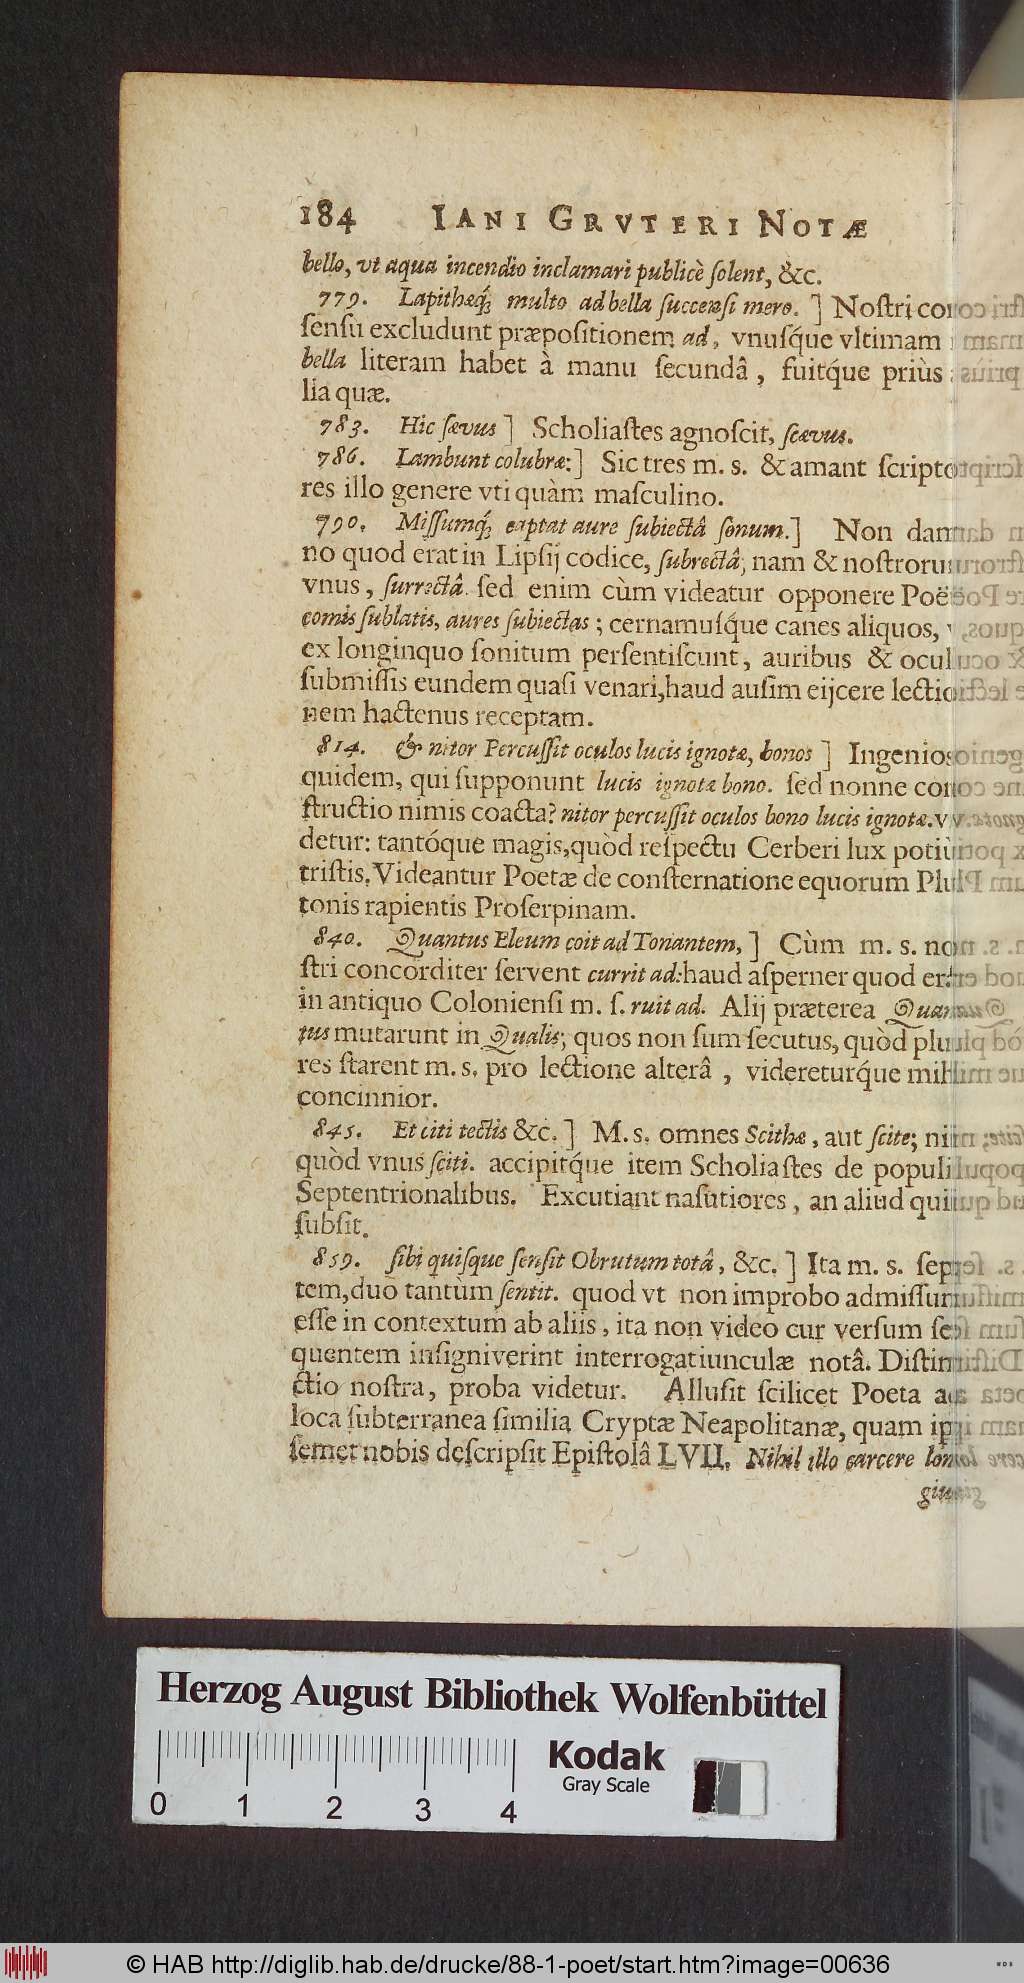 184 IANI GRVTERI NOTÆ
bello, vt aqua incendio inclamari publicè ſolent, &c.
779. Lapithæq́; multo ad bella ſuccenſi mero. ] Noſtri con
ſenſu excludunt præpoſitionem ad, vnuſq́ue vltimam
bella literam habet à manu ſecundâ, fuitq́ue priùs
lia quæ.
783. Hic ſævus ] Scholiaſtes agnoſcit, ſcævus.
786. Lambunt colubræ: ] Sic tres m. s. & amant ſcripto
res illo genere vti quàm maſculino.
790. Miſſumq́; captat aure ſubiectâ ſonum. ] Non dam
no quod erat in Lipſij codice, ſubrectâ; nam & noſtrorum
vnus, ſurrectâ. ſed enim cùm videatur opponere Poë
comis ſublatis, aures ſubiectas; cernamuſq́ue canes aliquos,
ex longinquo ſonitum perſentiſcunt, auribus & ocul
ſubmiſſis eundem quaſi venari, haud auſim eijcere lectio
nem hactenus receptam.
814. & nitor Percuſſit oculos lucis ignotæ, bonos ] Ingenioſ
quidem, qui ſupponunt lucis ignotæ bono. ſed nonne con
ſtructio nimis coacta? nitor percuſſit oculos bono lucis ignotæ. v
detur: tantóque magis, quòd reſpectu Cerberi lux potiù
triſtis. Videantur Poetæ de conſternatione equorum Plu
tonis rapientis Proſerpinam.
840. Quantus Eleum coit ad Tonantem, ] Cùm m. s. no
ſtri concorditer ſervent currit ad: haud aſperner quod er
in antiquo Colonienſi m. ſ. ruit ad. Alij præterea Quan
tus mutarunt in Qualis; quos non ſum ſecutus, quòd plu
res ſtarent m. s. pro lectione alterâ, videreturq́ue mihi
concinnior.
845. Et citi tectis &c. ] M. s. omnes Scithæ, aut ſcite; ni
quòd vnus ſciti. accipitq́ue item Scholiaſtes de populi
Septentrionalibus. Excutiant naſutiores, an aliud qui
ſubſit.
859. ſibi quiſque ſenſit Obrutum totâ, &c. ] Ita m. s. ſep
tem, duo tantùm ſentit. quod vt non improbo admiſſum
eſſe in contextum ab aliis, ita non video cur verſum ſe
quentem inſigniverint interrogatiunculæ notâ. Diſtin
ctio noſtra, proba videtur. Alluſit ſcilicet Poeta ad
loca ſubterranea ſimilia Cryptæ Neapolitanæ, quam ip
ſemet nobis deſcripſit Epiſtolâ LVII. Nihil illo carcere lon
giu
Herzog August Bibliothek Wolfenbüttel
Kodak
Gray Scale
0 1 2 3 4
© HAB http://diglib.hab.de/drucke/88-1-poet/start.htm?image=00636